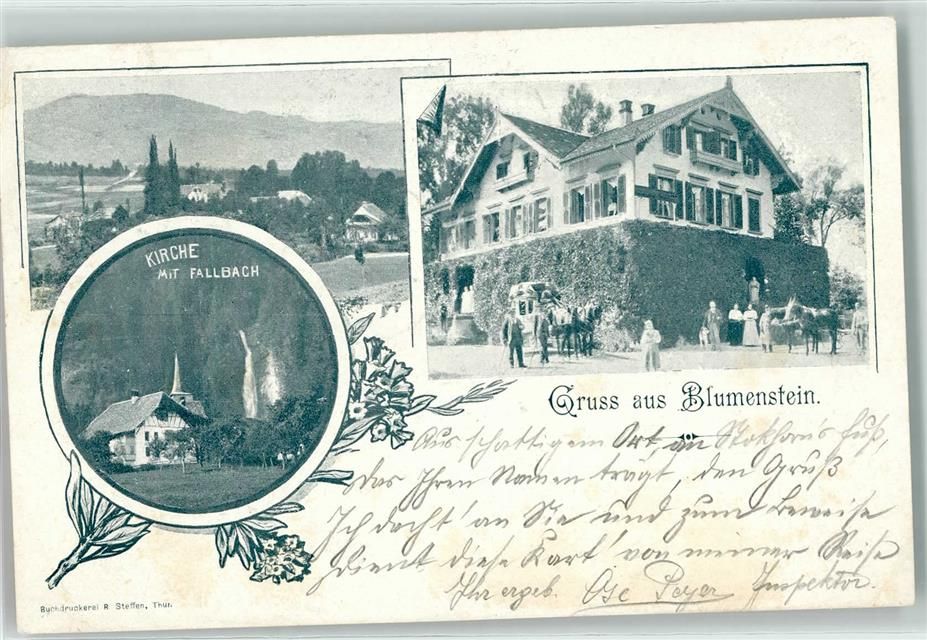 KIRCHE
MIT FALLBACH
Gruss aus Blumenstein.
Aus schattigem Ort, an Stokhorns Fuß,
das Ihren Namen tragt, den Gruß
Ich dacht' an Sie und zum Beweise
dient diese Kart' von meiner Reise
Ihr ergeb. Peyer Inspektor.
Buchdruckerei R. Steffen, Thun.